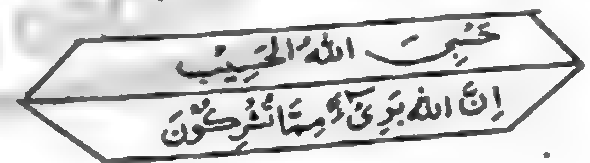 حَسْبِىَ اللهُ الْحَسِيْبُ
اِنَّ اللهَ بَرِىْٓءٌ مِمَّا تُشْرِكُوْنَ